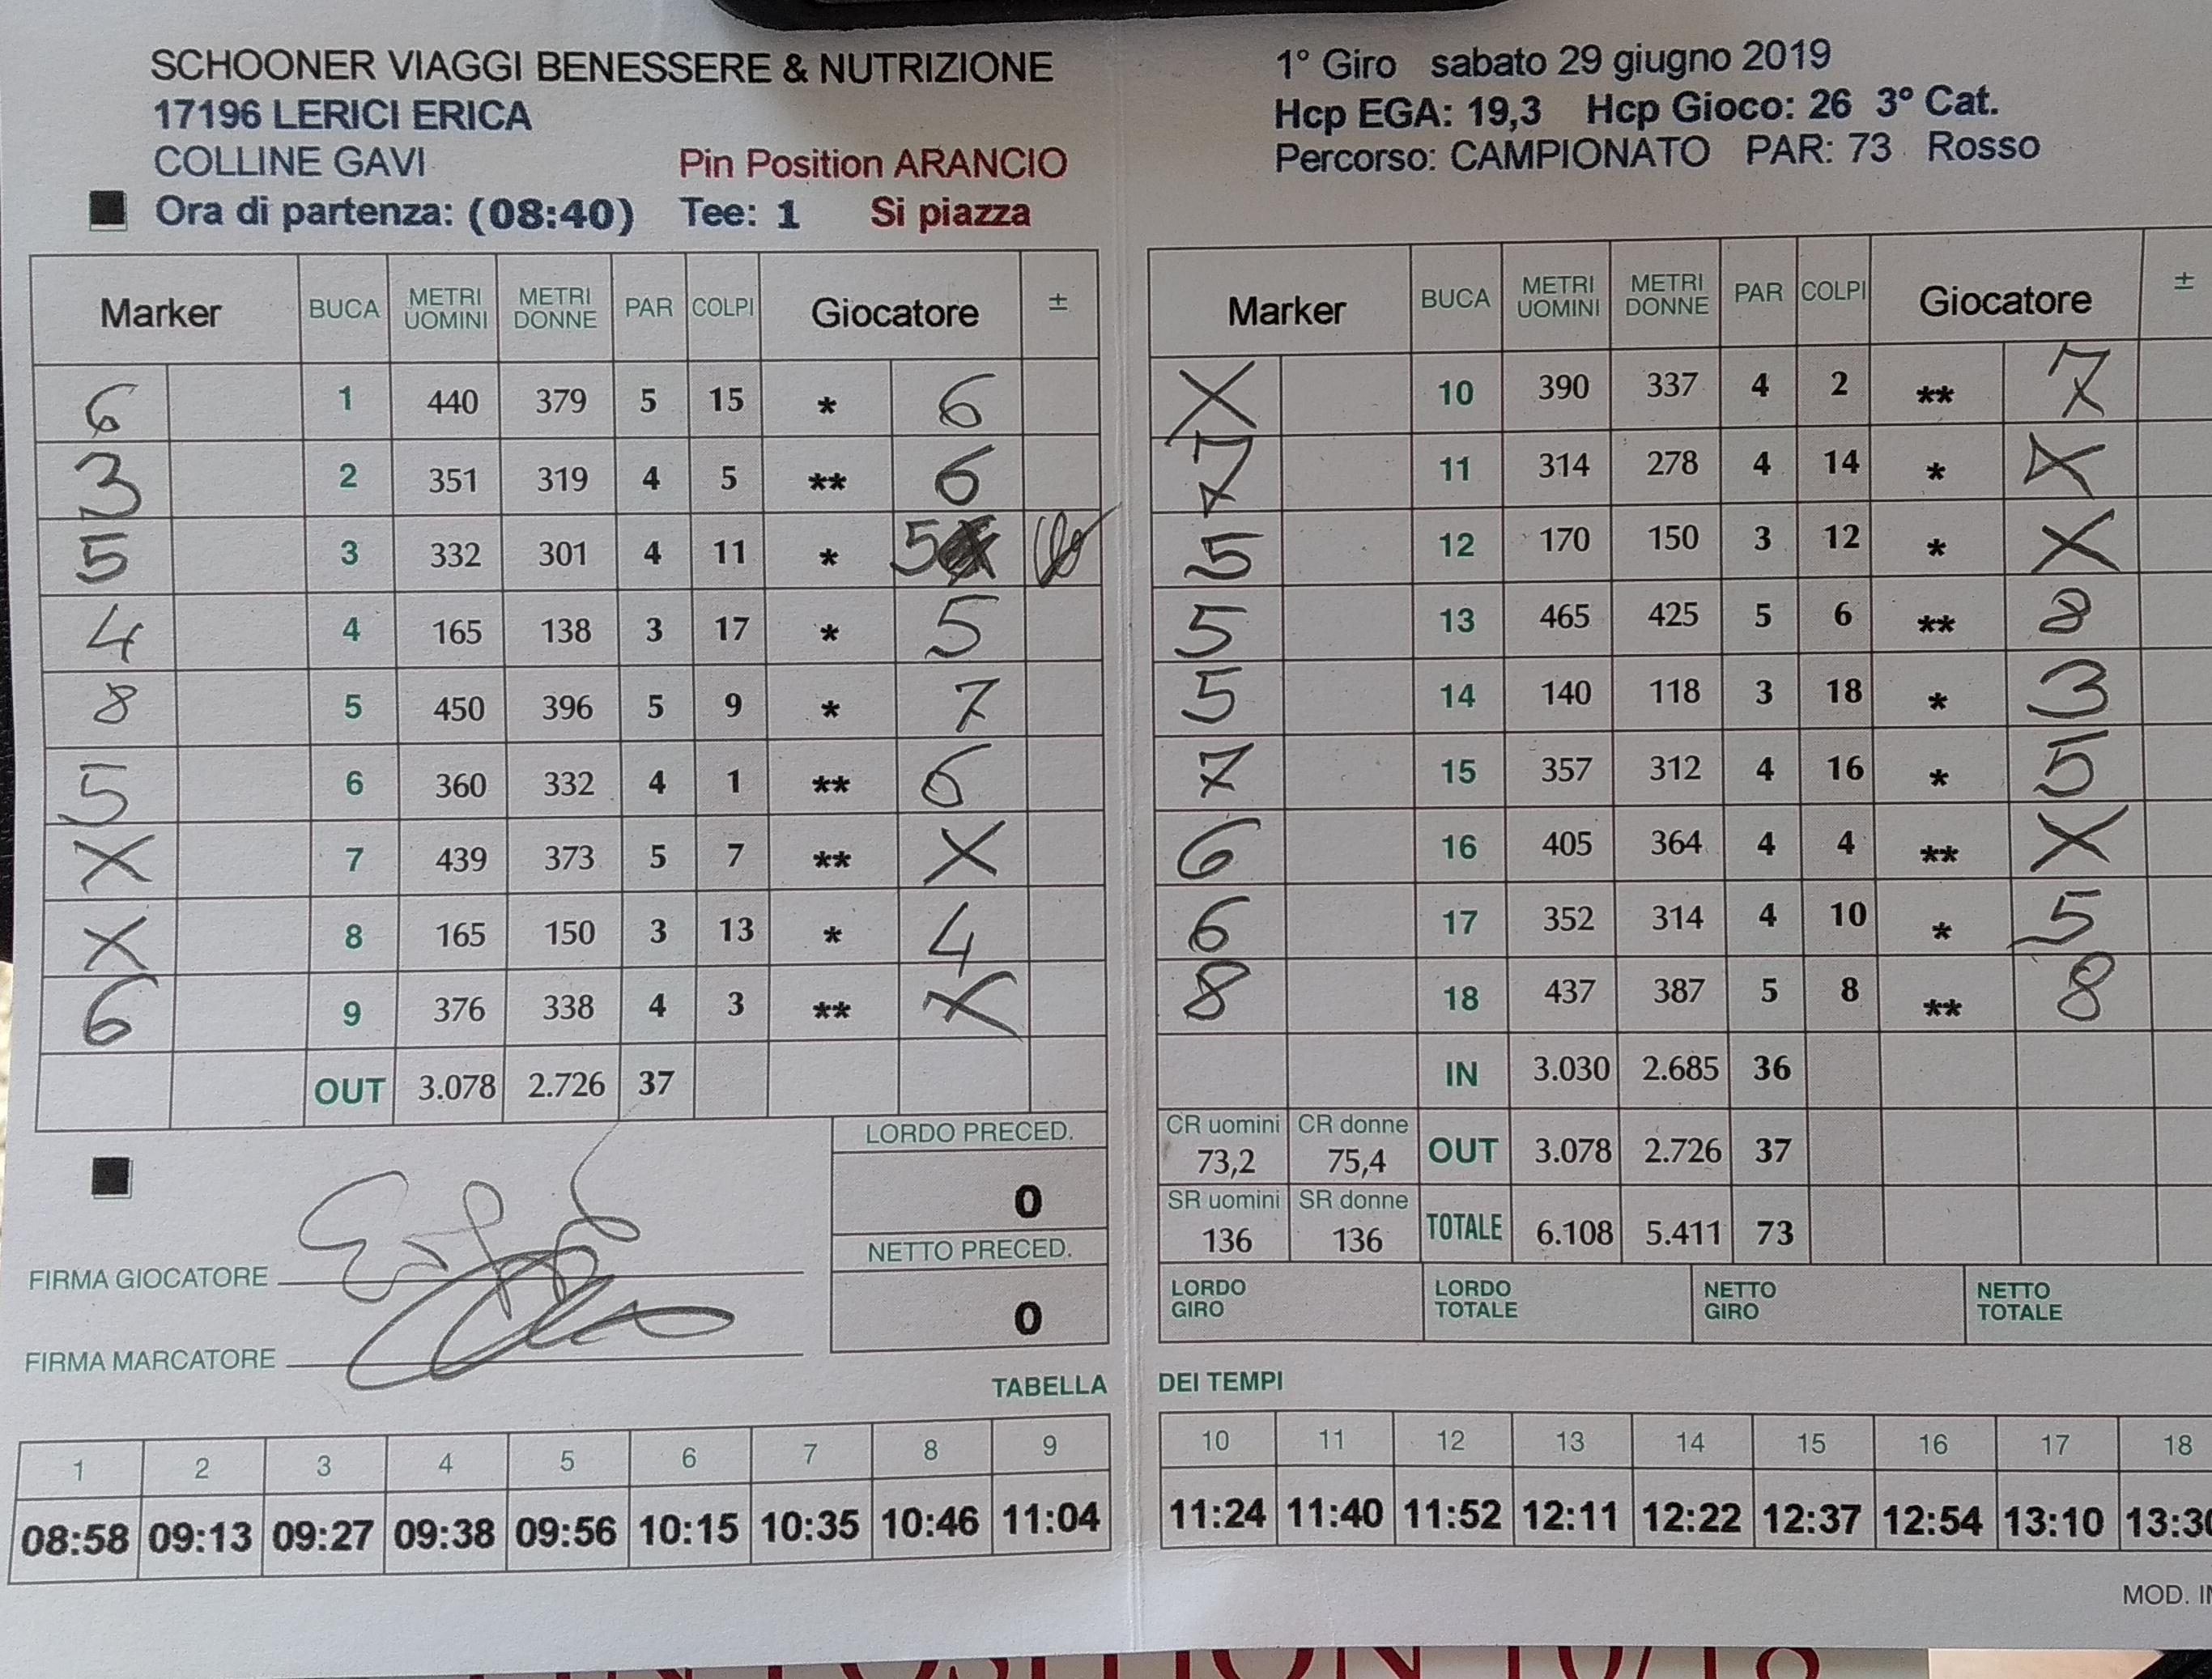 SCHOONER VIAGGI BENESSERE & NUTRIZIONE
17196 LERICI ERICA
COLLINE GAVI Pin Position ARANCIO
Ora di partenza: (08:40) Tee: 1 Si piazza
1° Giro sabato 29 giugno 2019
Hcp EGA: 19,3 Hcp Gioco: 26 3° Cat.
Percorso: CAMPIONATO PAR: 73 Rosso
Marker BUCA METRI UOMINI METRI DONNE PAR COLPI Giocatore ±
6 1 440 379 5 15 * 6
3 2 351 319 4 5 ** 6
5 3 332 301 4 11 * 5
4 4 165 138 3 17 * 5
8 5 450 396 5 9 * 7
5 6 360 332 4 1 ** 6
X 7 439 373 5 7 ** X
X 8 165 150 3 13 * 4
6 9 376 338 4 3 ** X
OUT 3.078 2.726 37
LORDO PRECED.
0
NETTO PRECED.
0
FIRMA GIOCATORE
FIRMA MARCATORE
Marker BUCA METRI UOMINI METRI DONNE PAR COLPI Giocatore ±
X 10 390 337 4 2 ** 7
7 11 314 278 4 14 * X
5 12 170 150 3 12 * X
5 13 465 425 5 6 ** 8
5 14 140 118 3 18 * 3
7 15 357 312 4 16 * 5
6 16 405 364 4 4 ** X
6 17 352 314 4 10 * 5
8 18 437 387 5 8 ** 8
IN 3.030 2.685 36
CR uomini 73,2 CR donne 75,4 OUT 3.078 2.726 37
SR uomini 136 SR donne 136 TOTALE 6.108 5.411 73
LORDO GIRO LORDO TOTALE NETTO GIRO NETTO TOTALE
TABELLA DEI TEMPI
1 2 3 4 5 6 7 8 9 10 11 12 13 14 15 16 17 18
08:58 09:13 09:27 09:38 09:56 10:15 10:35 10:46 11:04 11:24 11:40 11:52 12:11 12:22 12:37 12:54 13:10 13:30
MOD.
PIN POSITION 10/18